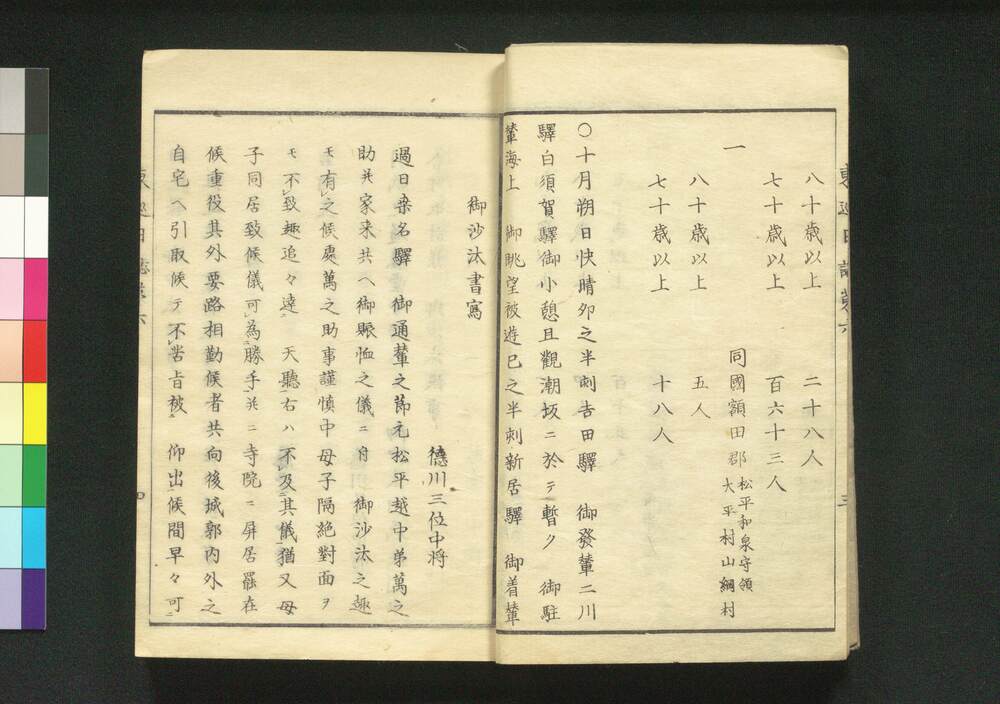 八十歳以上　二十八人
七十歳以上　百六十三人
一　同國額田郡　松平和泉守領
大平村山綱村
八十歳以上　五人
七十歳以上　十八人
○十月朔日快晴夘之半刻吉田驛　御發輦二川
驛白須賀驛御小憩且觀潮坂ニ於テ暫ク　御駐
輦海上　御眺望被遊巳之半刻新居驛　御着輦
御沙汰書寫
德川三位中将
過日桑名驛　御通輦之節元松平越中弟萬之
助并家来共ヘ御賑恤之儀ニ付　御沙汰之趣
モ有之候處萬之助事謹慎中母子隔絶對面ヲ
モ不致趣追々達　天聽右ハ不及其儀猶又母
子同居致候儀可為勝手并ニ寺院ニ屏居罷在
候重役其外要路相勤候者共向後城郭内外之
自宅ヘ引取候テ不苦旨被　仰出候間早々可
四